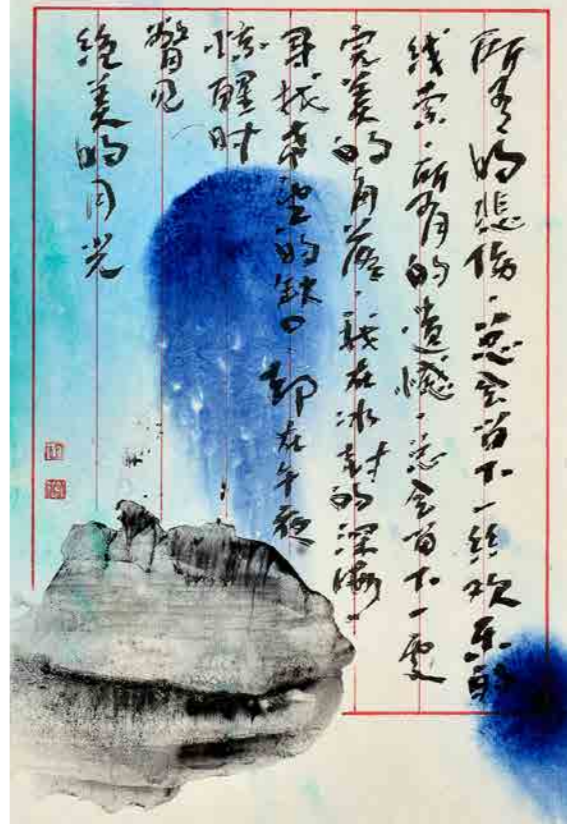 所有的悲伤，总会留下一丝欢乐的
线索，所有的遗憾，总会留下一处
完美的角落，我在冰封的深海，
寻找希望的缺口，却在午夜
惊醒时
瞥见
绝美的月光